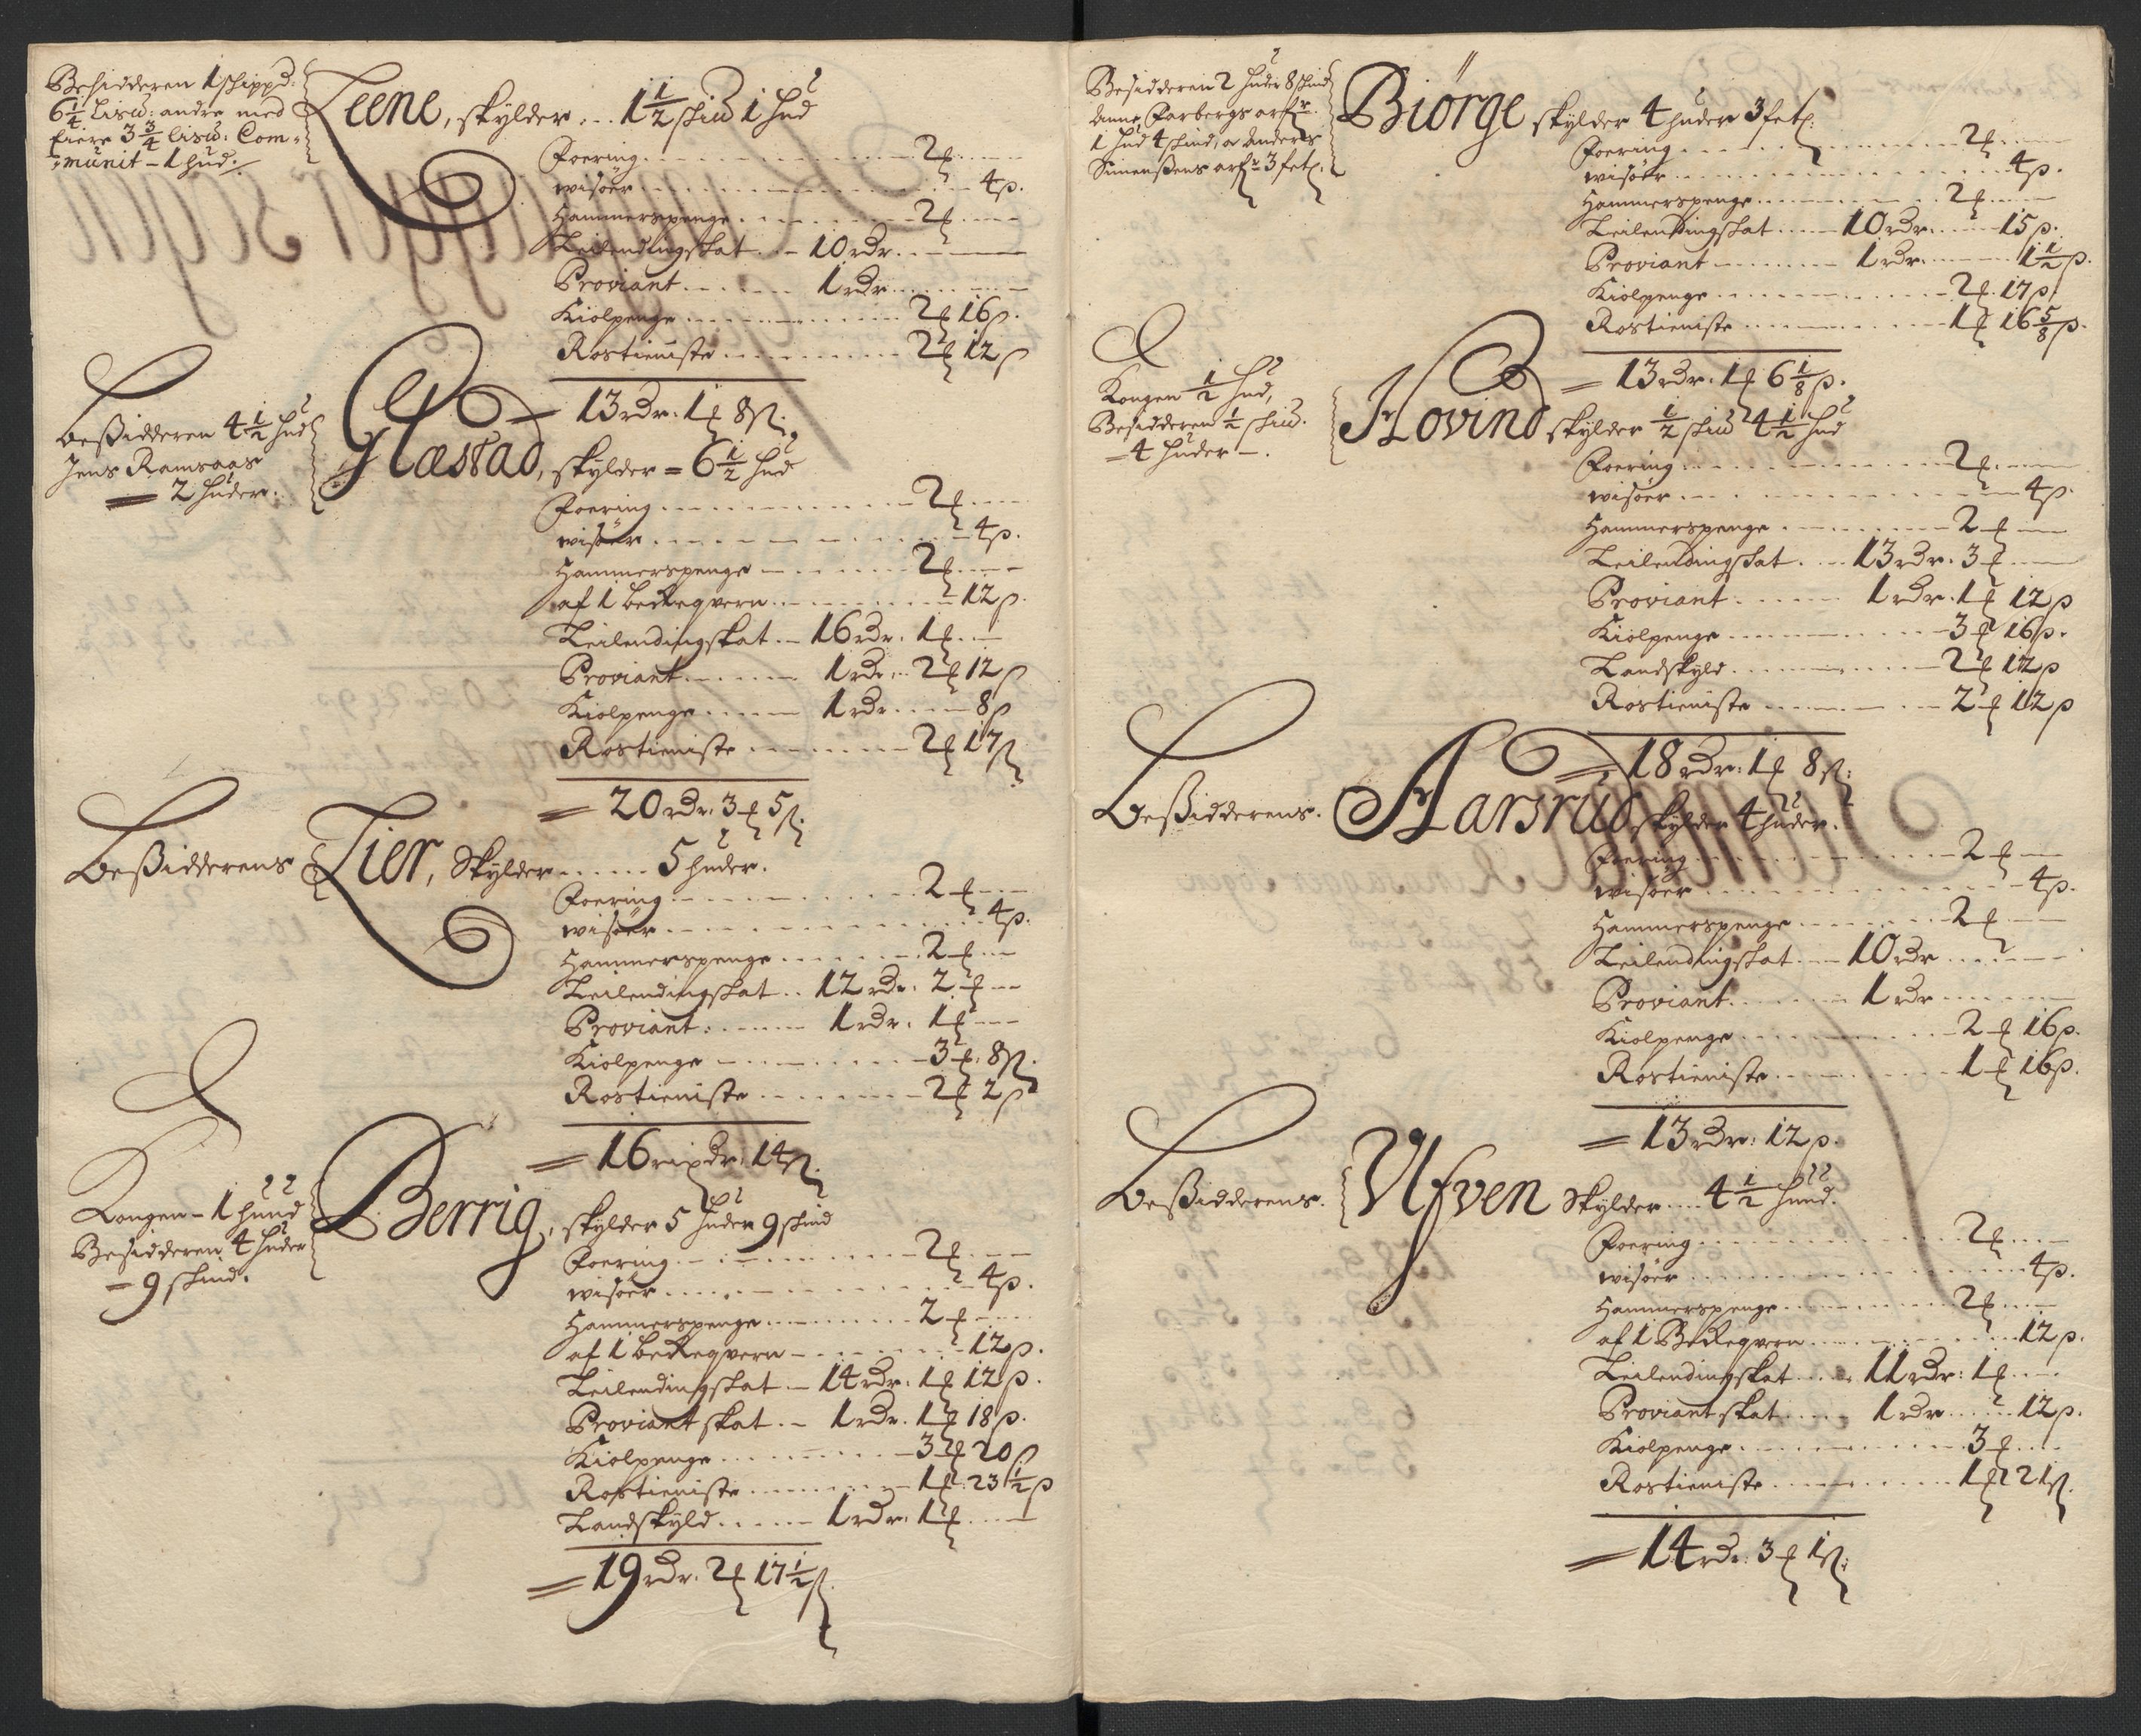 Besidderen 1 schippd:
6 1/4 lisd: andre med
Eiere 3 3/4 lisd: Com-
munit - 1 hud:
Leene, skylder ... 1 1/2 skid 1 hud
Foering ... 2 ₰
wisöer ... 4 β.
Hammerspenge ... 2 ₰
Leilendingskat ... 10 rdr.
Proviant ... 1 rdr
Kiolpenge ... 2 ₰ 16 β.
Rostieniste ... 2 ₰ 12 β
= 13 rdr. 1 ₰ 8 β.
beßidderen 4 1/2 hud
Jens Ramsaas
= 2 huder.
Glæstad, skylder = 6 1/2 hud
Foering ... 2 ₰
wisöer ... 4 β.
Hammerspenge ... 2 ₰
af 1 beckeqvern ... 12 β.
Leilendingskat ... 16 rdr. 1 ₰
Proviant ... 1 rdr. 2 ₰ 12 β
Kiolpenge ... 1 rdr. 8 β
Rostieniste ... 2 ₰ 17 β
= 20 rdr. 3 ₰ 5 β.
beßidderens
Lier, Skylder ... 5 huder.
Foering ... 2 ₰
wisöer ... 4 β.
Hammerspenge ... 2 ₰
Leilendingskat .. 12 rdr. 2 ₰
Proviant ... 1 rdr. 1 ₰
Kiolpenge ... 3 ₰ 8 β.
Rostieniste ... 2 ₰ 2 β
= 16 ripdr. 14 β.
Kongen - 1 huud
Besidderen 4 huder
- 9 skind.
Berrig, skylder 5 huder 9 skind
Foering ... 2 ₰
wisöer ... 4 β.
Hammerspenge ... 2 ₰
af 1 beckeqvern ... 12 β.
Leilendingskat ... 14 rdr. 1 ₰ 12 β.
Proviant skat .. 1 rdr. 1 ₰ 18 β.
Kiolpenge ... 3 ₰ 20 β
Rostieniste ... 1 ₰ 23 1/2 β
Landskyld ... 1 rdr. 1 ₰
= 19 rdr. 2 ₰ 17 1/2 β.
Besidderen 2 huder 8 skind
Anne Farbergs arf:r
1 hud 4 skind, a Anders
Simensßens arf:r 3 fetl.
Biörge skylder 4 huder 3 fetl.
Foering ... 2 ₰
wisöer ... 4 β.
Hammerspenge ... 2 ₰
Leilendingskat ... 10 rdr. 15 β.
Proviant ... 1 rdr. 1 1/2 β.
Kiolpenge ... 2 ₰ 17 β.
Rostieniste ... 1 ₰ 16 5/8 β.
= 13 rdr. 1 ₰ 6 1/8 β.
Kongen 1/2 hud,
Besidderen 1/2 skid.
- 4 huder -.
Hovind skylder 1/2 skid 4 1/2 hud
Foering ... 2 ₰
wisöer ... 4 β.
Hammerspenge ... 2 ₰
Leilendingskat ... 13 rdr. 3 ₰
Proviant ... 1 rdr. 1 ₰ 12 β
Kiolpenge ... 3 ₰ 16 β.
Landskyld ... 2 ₰ 12 β
Rostieniste ... 2 ₰ 12 β
= 18 rdr. 1 ₰ 8 β.
beßidderens.
Aarsrud skylder 4 huder.
Foering ... 2 ₰
wisöer ... 4 β.
Hammerspenge ... 2 ₰
Leilendingskat ... 10 rdr
Proviant ... 1 rdr
Kiolpenge ... 2 ₰ 16 β.
Rostieniste ... 1 ₰ 16 β.
= 13 rdr. 12 β.
beßidderens.
Ufven Skylder .... 4 1/2 huud.
Foering ... 2 ₰
wisöer ... 4 β.
Hammerspenge ... 2 ₰
af 1 Beckeqvern ... 12 β.
Leilendingskat ... 11 rdr. 1 ₰
Proviant skat ... 1 rdr ... 12 β.
Kiolpenge ... 3 ₰
Rostieniste ... 1 ₰ 21 β.
= 14 rdr. 3 ₰ 1 β.